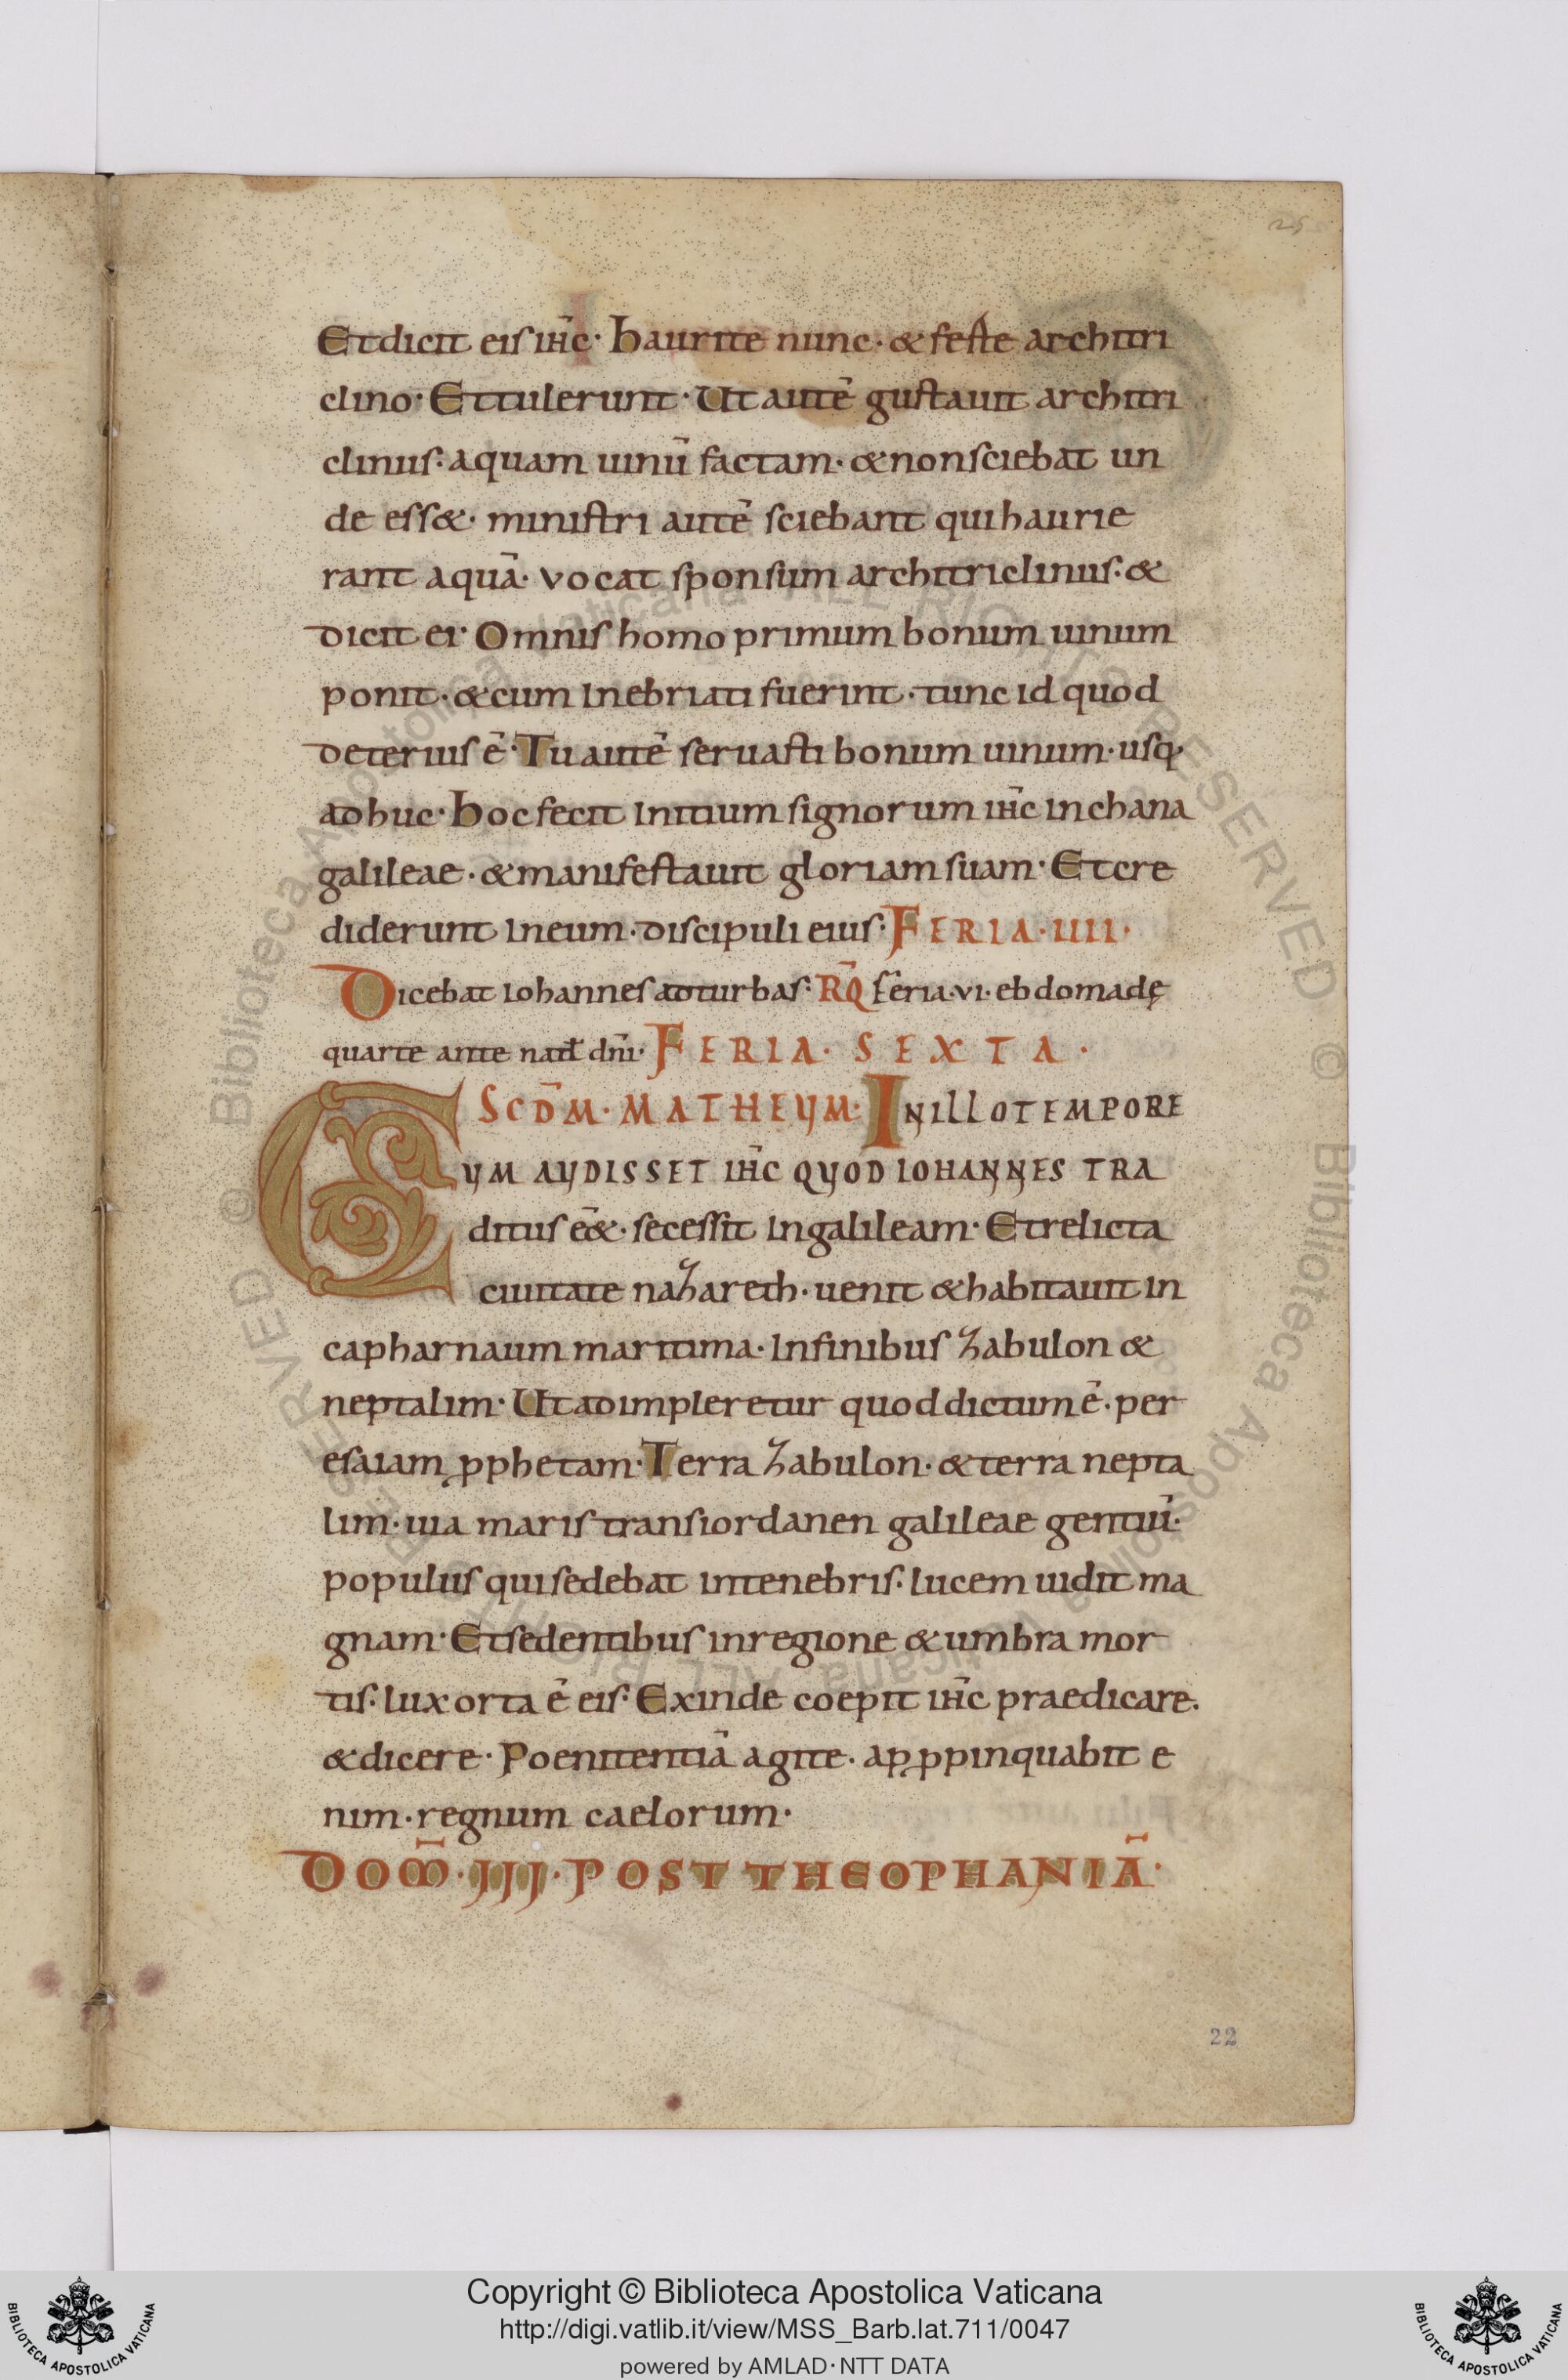 25
Et dicit eis ihc̄· Haurite nunc· & ferte architri
clino· Et tulerunt· Ut autē gustauit architri
clinus· aquam uinū factam· & non sciebat un
de ess&· ministri autē sciebant qui haurie
rant aquā· vocat sponsum architriclinus· &
dicit ei· Omnis homo primum bonum uinum
ponit· & cum inebriati fuerint· tunc id quod
deterius ē· Tu autē seruasti bonum uinum· usq·
adhuc· Hoc fecit initium signorum ihc̄ in chana
galileae· & manifestauit gloriam suam· Et cre
diderunt in eum· discipuli eius· FERIA· IIII·
Dicebat iohannes ad turbas· RQ̄ feria· vi· ebdomadę
quarte ante nat̄ dn̄i· FERIA· SEXTA·
SCDM̄· MATHEUM· IN ILLO TEMPORE
CUM AUDISSET IHC̄ QUOD IOHANNES TRA
ditus ēē&· secessit in galileam· Et relicta
ciuitate nazareth· uenit & habitauit in
capharnaum maritima· In finibus zabulon &
neptalim· Ut adimpleretur quod dictum ē· per
esaiam ꝓphetam· Terra zabulon· & terra nepta
lim· uia maris trans iordanen galileae gentiū·
populus qui sedebat in tenebris· lucem uidit ma
gnam· Et sedentibus in regione & umbra mor
tis· lux orta ē eis· Exinde coepit ihc̄ praedicare·
& dicere· Poenitentiā agite· apꝓpinquabit e
nim· regnum caelorum·
DOM̄· III· POST THEOPHANIĀ·
22
© Biblioteca Apostolica Vaticana ALL RIGHTS RESERVED
Copyright © Biblioteca Apostolica Vaticana
http://digi.vatlib.it/view/MSS_Barb.lat.711/0047
powered by AMLAD·NTT DATA
BIBLIOTECA APOSTOLICA VATICANA
BIBLIOTECA APOSTOLICA VATICANA